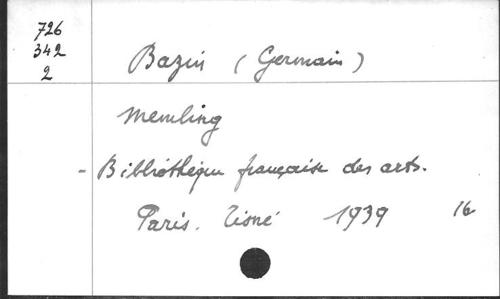 726
342
2
Bazin (Germain)
Memling
- Bibliothèque française des arts.
Paris. Tisné 1939 16